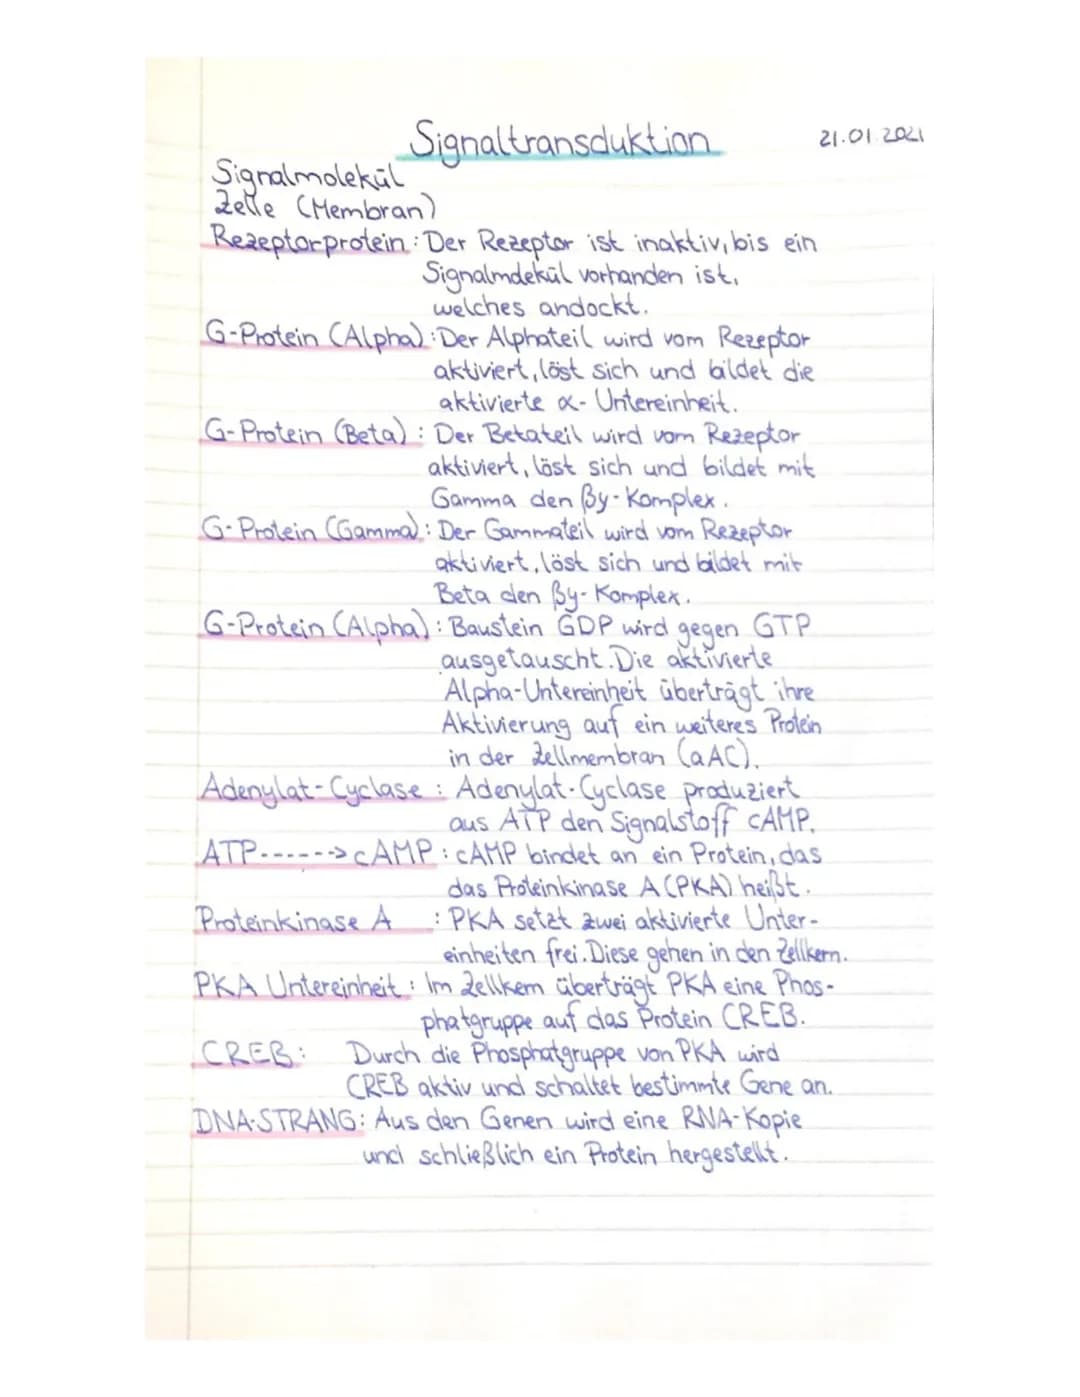 Signaltransduktion 21.01.2021
Signalmolekül
Zelle (Membran)
Rezeptorprotein: Der Rezeptor ist inaktiv, bis ein
Signalmolekül vorhanden ist,
welches andockt.
G-Protein (Alpha): Der Alphateil wird vom Rezeptor
aktiviert, löst sich und bildet die
aktivierte α-Untereinheit.
G-Protein (Beta): Der Betateil wird vom Rezeptor
aktiviert, löst sich und bildet mit
Gamma den βγ-Komplex.
G-Protein (Gamma): Der Gammateil wird vom Rezeptor
aktiviert, löst sich und bildet mit
Beta den βγ-Komplex.
G-Protein (Alpha): Baustein GDP wird gegen GTP
ausgetauscht. Die aktivierte
Alpha-Untereinheit überträgt ihre
Aktivierung auf ein weiteres Protein
in der Zellmembran (aAC).
Adenylat-Cyclase: Adenylat-Cyclase produziert
aus ATP den Signalstoff cAMP.
ATP------> cAMP: cAMP bindet an ein Protein, das
das Proteinkinase A (PKA) heißt.
Proteinkinase A : PKA setzt zwei aktivierte Unter-
einheiten frei. Diese gehen in den Zellkern.
PKA Untereinheit: Im Zellkern überträgt PKA eine Phos-
phatgruppe auf das Protein CREB.
CREB: Durch die Phosphatgruppe von PKA wird
CREB aktiv und schaltet bestimmte Gene an.
DNA-STRANG: Aus den Genen wird eine RNA-Kopie
und schließlich ein Protein hergestellt.